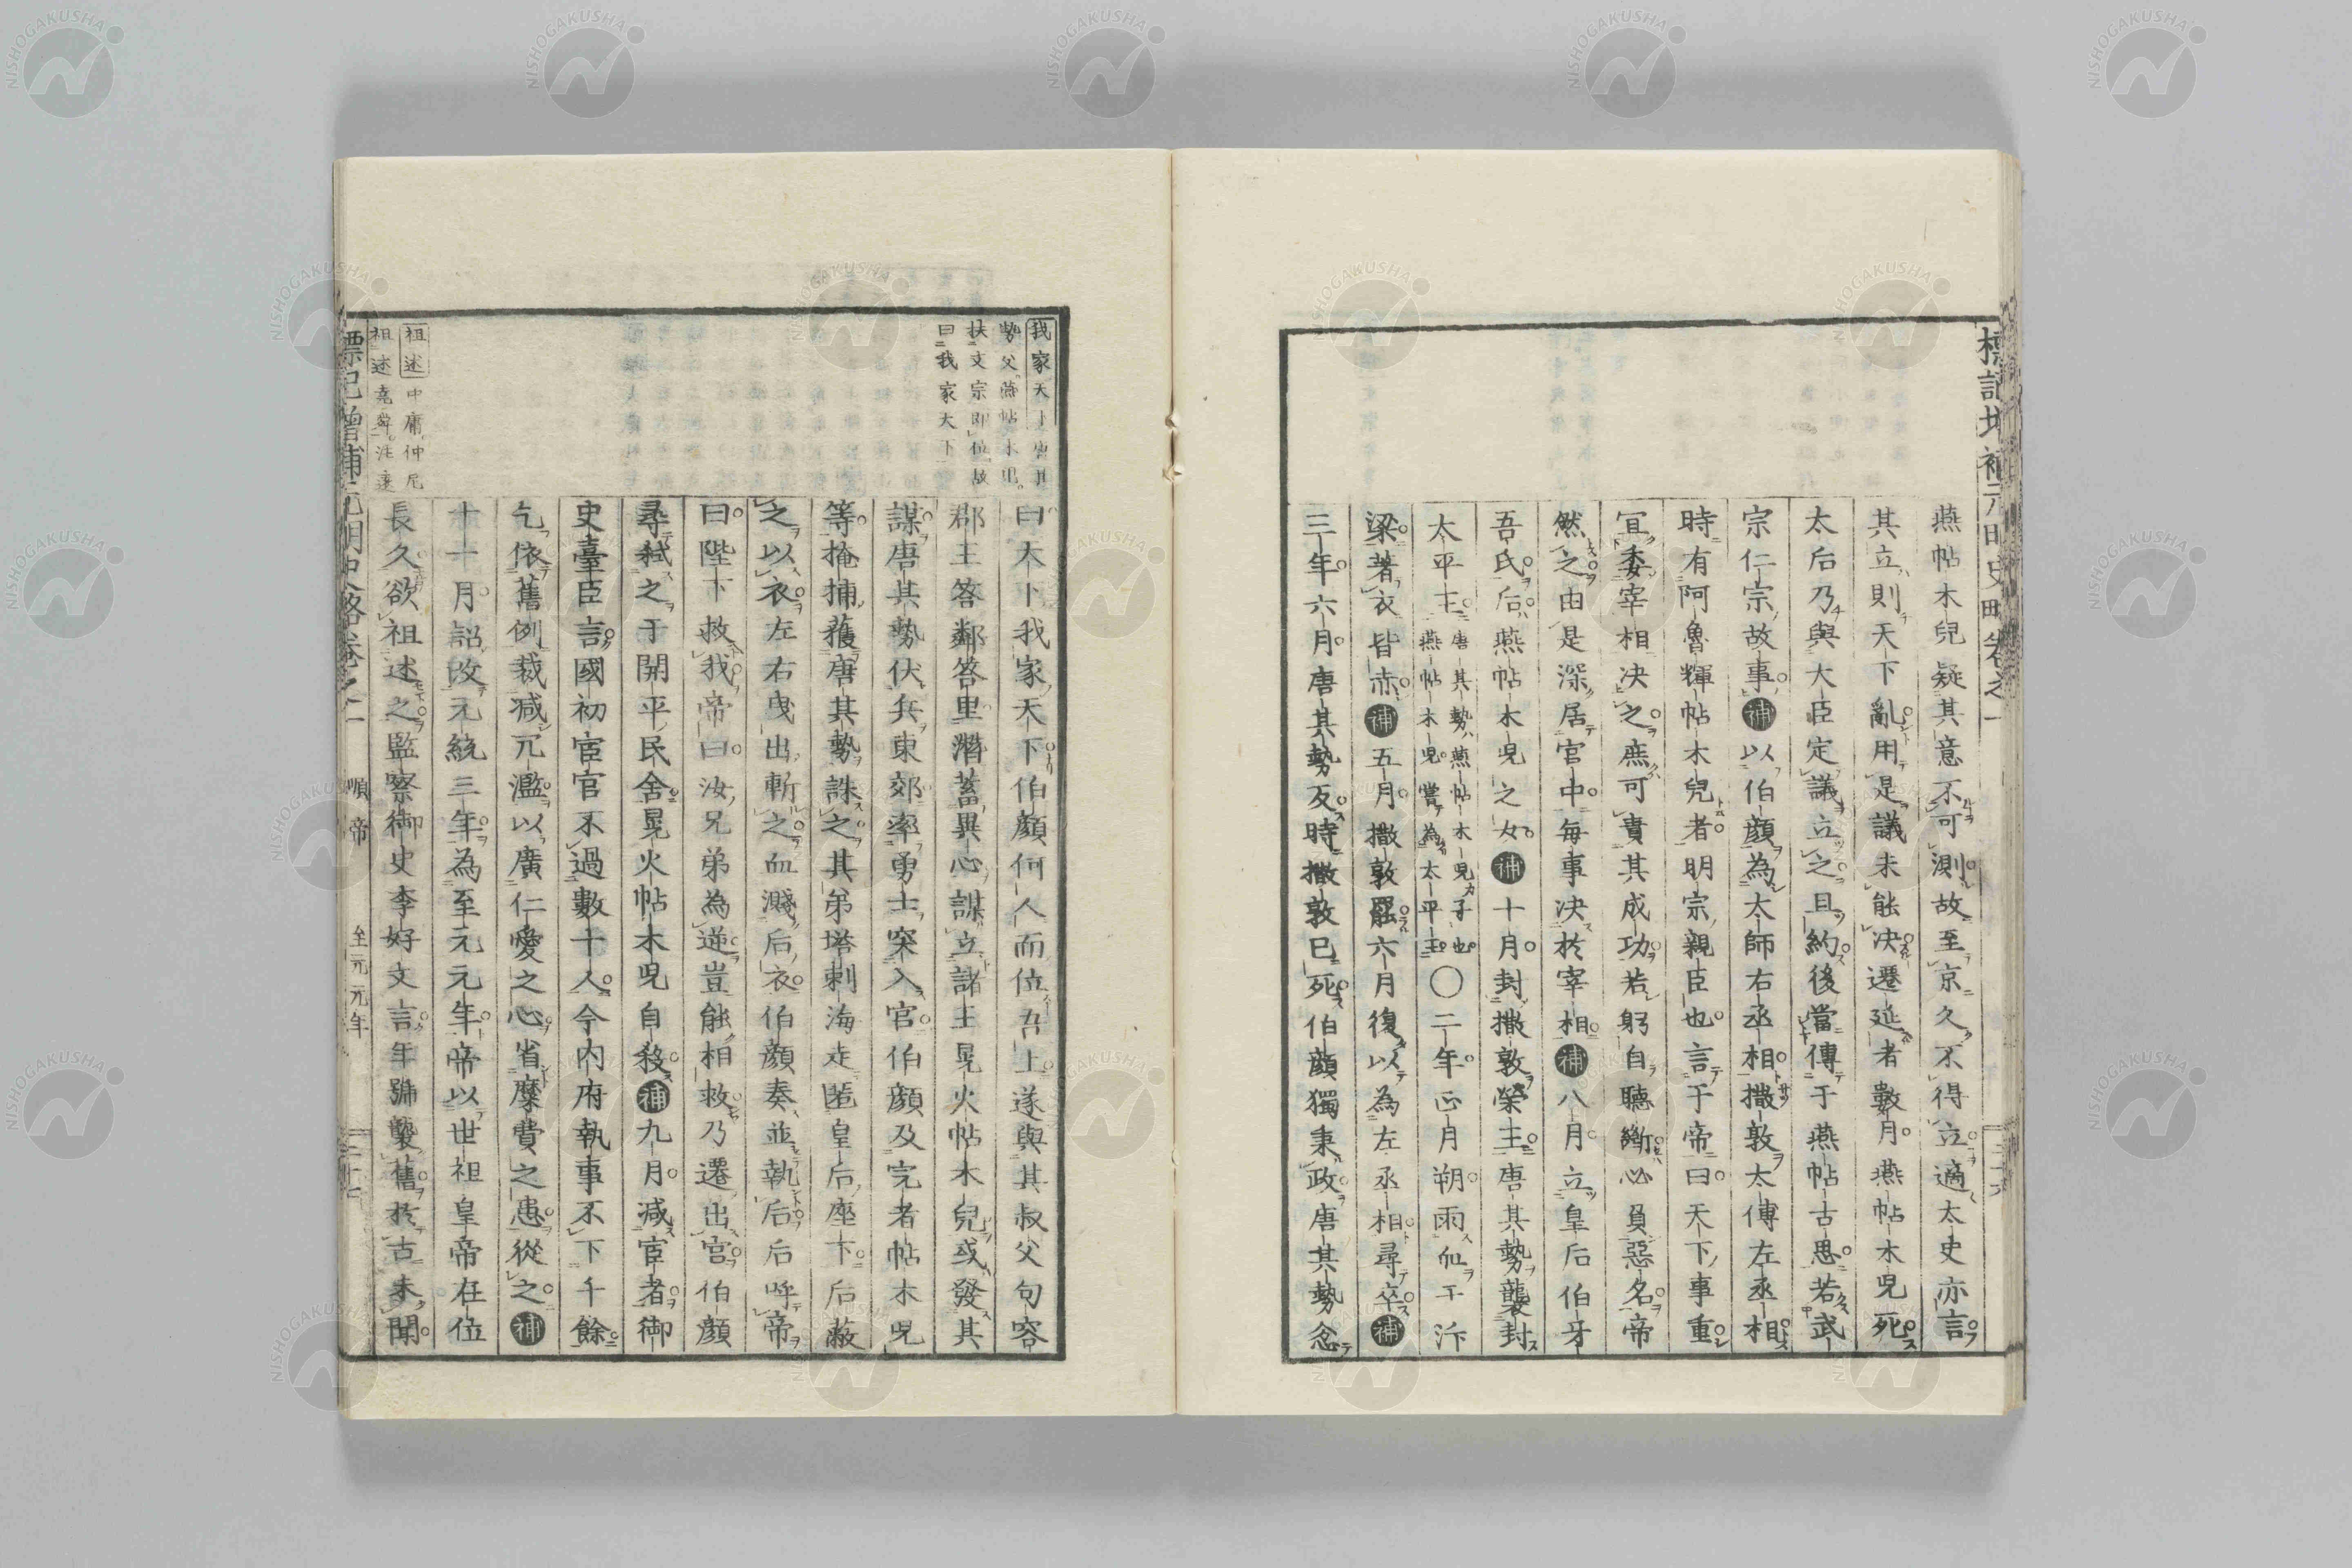 燕帖木兒疑其意不可測故至京久不得立適太史亦言
其立則天下亂用是議未能決遷延者數月燕帖木兒死
太后乃與大臣定議立之且約後當傳于燕帖古思若武
宗仁宗故事補以伯顏為太師右丞相撒敦太傅左丞相
時有阿魯輝帖木兒者明宗親臣也言于帝曰天下事重
宜委宰相決之庶可責其成功若躬自聽斷必負惡名帝
然之由是深居宮中每事決於宰相補八月立皇后伯牙
吾氏后燕帖木兒之女補十月封撒敦榮王唐其勢襲封
太平王唐其勢燕帖木兒子也燕帖木兒嘗為太平王〇二年正月朔雨血于汴
梁著衣皆赤補五月撒敦罷六月復以為左丞相尋卒補
三年六月唐其勢反時撒敦已死伯顏獨秉政唐其勢忿
我家天下唐其
勢父燕帖木兒
扶文宗即位故
曰我家天下
曰天下我家天下伯顏何人而位吾上遂與其叔父句容
郡王答鄰答里潛蓄異心謀立諸王晃火帖木兒或發其
謀唐其勢伏兵東郊率勇士突入宮伯顏及完者帖木兒
等掩捕獲唐其勢誅之其弟塔剌海走匿皇后座下后蔽
之以衣左右曳出斬之血濺后衣伯顏奏並執后后呼帝
曰陛下救我帝曰汝兄弟為逆豈能相救乃遷出宮伯顏
尋弒之于開平民舍晃火帖木兒自殺補九月減宦者御
史臺臣言國初宦官不過數十人今內府執事不下千餘
乞依舊例裁減冗濫以廣仁愛之心省糜費之患從之補
十一月詔改元統三年為至元元年帝以世祖皇帝在位
長久欲祖述之監察御史李好文言年號襲舊於古未聞
祖述中庸仲尼
祖述堯舜注遠
標記增補元明史略卷之一
順帝
至元元年
二十七